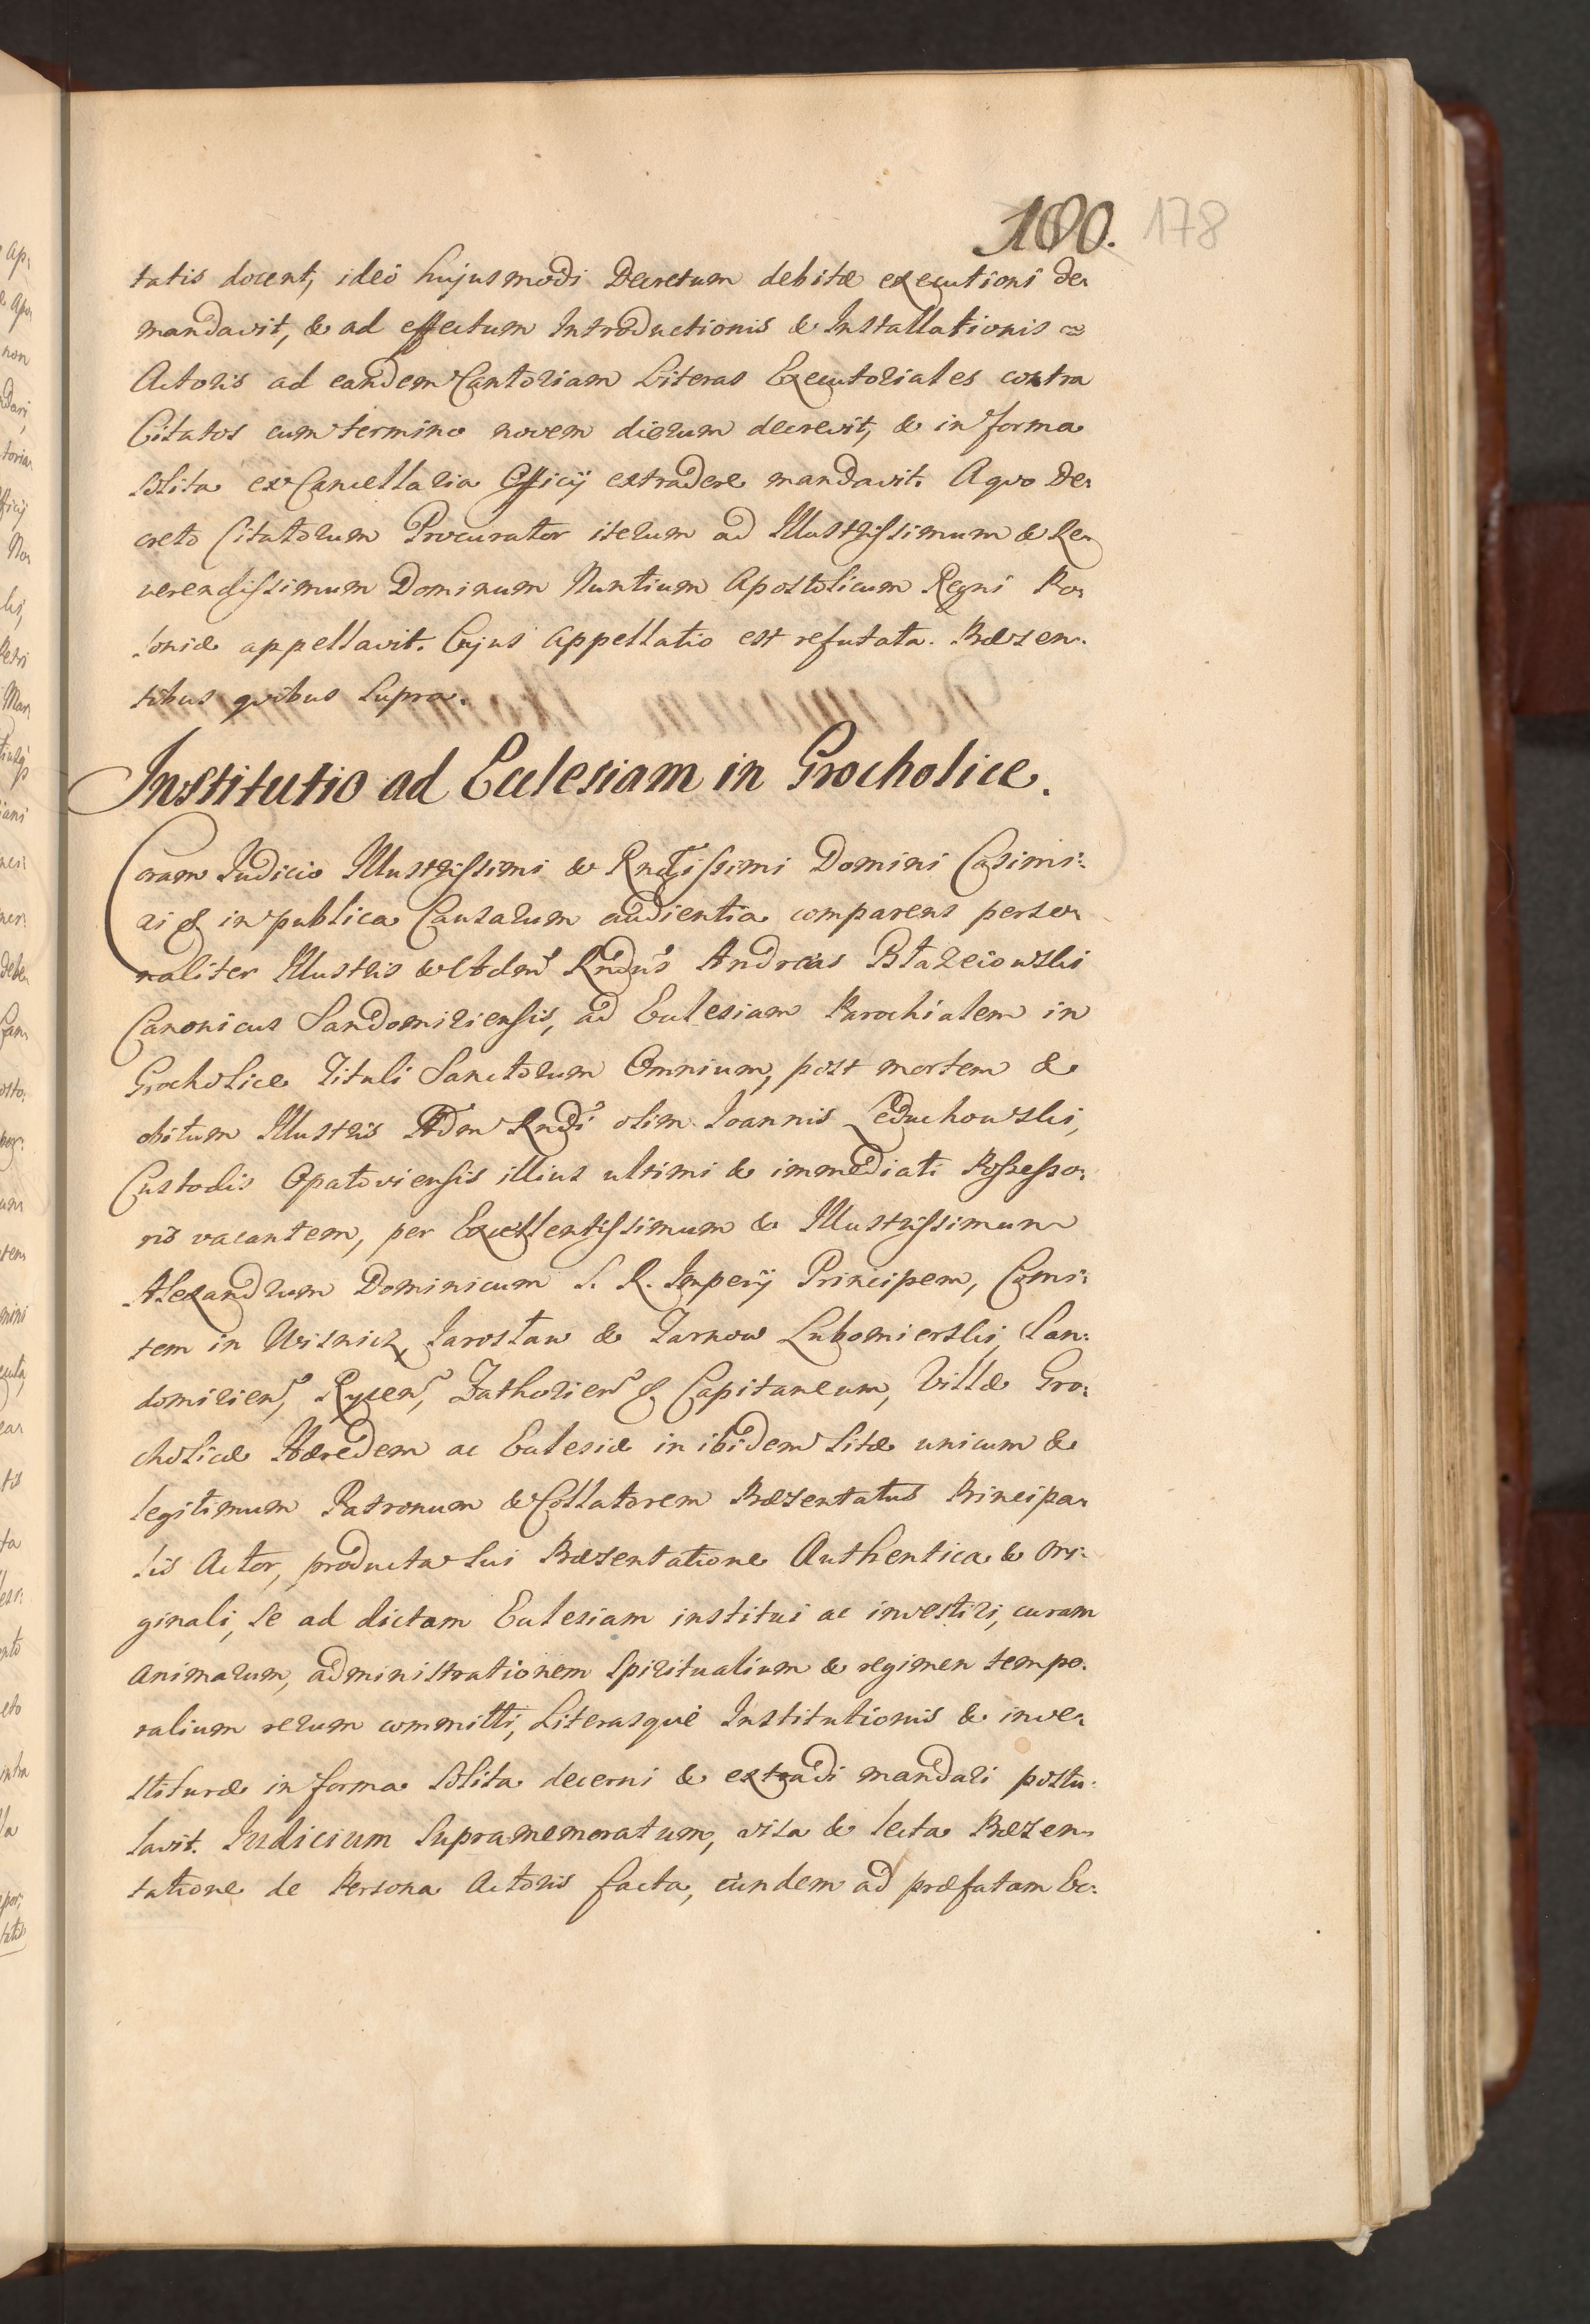 180. 178
tatis docent, ideò hujusmodi Decretum debitæ executioni de:
mandavit, & ad effectum Introductionis & Installationis
Actoris ad eandem Cantoriam Literas Executoriales contra
Citatos cum termino novem dierum decrevit, & in forma
solita ex Cancellaria Officij extradere mandavit. A quo De:
creto Citatorum Procurator iterum ad Illustrissimum & Re:
verendissimum Dominum Nuntium Apostolicum Regni Po:
loniæ appellavit. Cujus Appellatio est refutata. Præsen:
tibus quibus supra.
Institutio ad Ecclesiam in Grocholice.
Coram Judicio Illustrissimi & Rndissimi Domini Casimi:
ri & in publica Causarum audientia comparens perso:
naliter Illustris & Adm Rndus Andreas Błazeiowski
Canonicus Sandomiriensis, ad Ecclesiam Parochialem in
Grocholice Tituli Sanctorum Omnium, post mortem &
obitum Illustris Adm Rndi olim Joannis Leduchowski,
Custodis Opatoviensis illius ultimi & immediati Possesso:
ris vacantem, per Excellentissimum & Illustrissimum
Alexandrum Dominicum S. R. Imperij Principem, Comi:
tem in Wisnicz, Jarosław & Tarnow Lubomierski, San:
domirien, Rycen, Zathorien & Capitaneum, Villæ Gro:
cholice Hæredem ac Ecclesiæ in ibidem sitæ unicum &
legitimum Patronum & Collatorem Præsentatus Principa:
lis Actor, producta sui Præsentatione Authentica & Ori:
ginali, se ad dictam Ecclesiam institui ac investiri, curam
animarum, administrationem spiritualium & regimen tempo:
ralium rerum committi, Literasque Institutionis & inve:
stituræ in forma solita decerni & extradi mandari postu:
lavit. Judicium supramemoratum, visa & lecta Præsen:
tatione de Persona Actoris facta, eundem ad præfatam Ec: